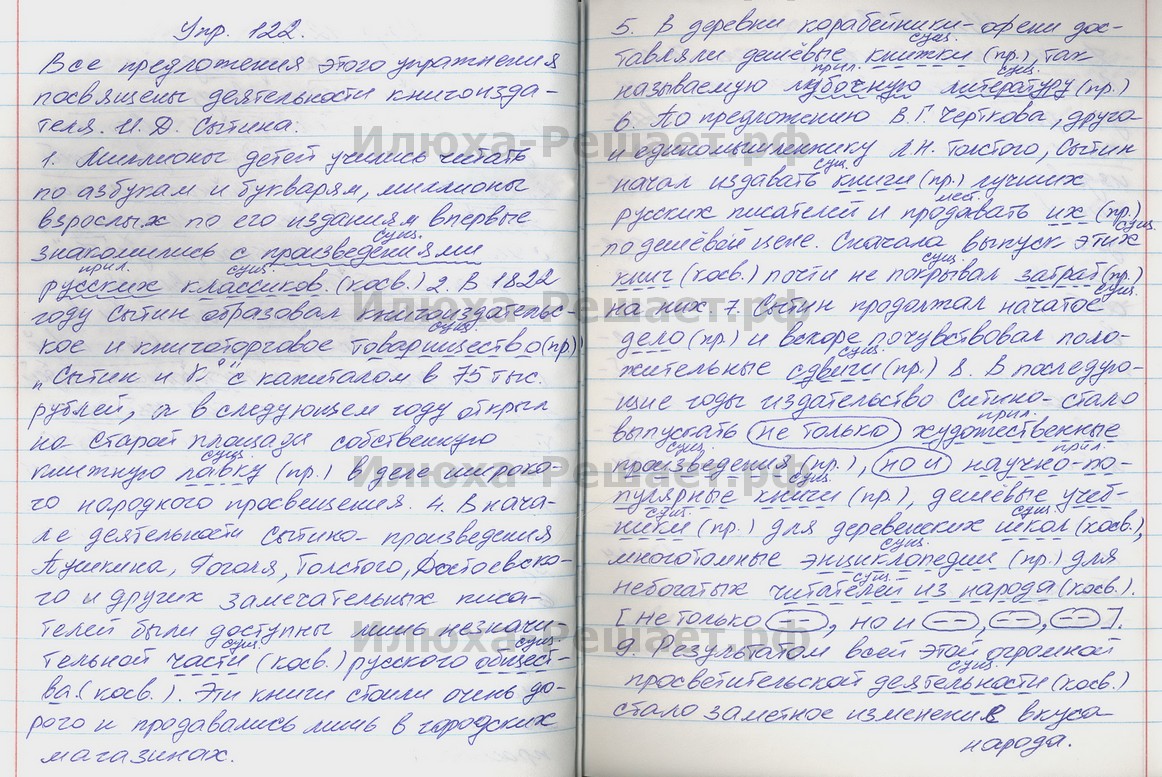 Упр. 122.
Все предложения этого упражнения
посвящены деятельности книгоизда-
теля. И. Д. Сытина.
1. Миллионы детей учились читать
по азбукам и букварям, миллионы
взрослых по его изданиям впервые
сущ.
знакомились с произведениями
прил. сущ.
русских классиков. (косв.) 2. В 1822
году Сытин образовал книгоиздательс-
сущ.
кое и книготорговое товарищество (пр.)
„Сытин и К°" с капиталом в 75 тыс.
рублей, а в следующем году открыл
на старой площади собственную
сущ.
книжную лавку (пр.) в деле широко-
го народного просвещения. 4. В нача-
ле деятельности Сытина- произведения
Пушкина, Гоголя, Толстого, Достоевско-
го и других замечательных писа-
телей были доступны лишь незначи-
сущ. сущ.
тельной части (косв.) русского общест-
ва (косв.). Эти книги стоили очень до-
рого и продавались лишь в городских
магазинах.
5. В деревни коробейники- офени дос-
сущ.
тавляли дешёвые книжки (пр.), так
прил. сущ.
называемую лубочную литературу (пр.)
6. По предложению В. Г. Черткова, друга
и единомышленнику Л.Н. Толстого, Сытин
сущ.
начал издавать книги (пр.) лучших
мест.
русских писателей и продавать их (пр.)
сущ.
по дешёвой цене. Сначала выпуск этих
сущ.
книг (косв.) почти не покрывал затрат (пр.)
сущ.
на них. 7. Сытин продолжал начатое
дело (пр.) и вскоре почувствовал поло-
сущ.
жительные сдвиги (пр.) 8. В последую-
щие годы издательство Ситина- стало
прил.
выпускать не только художественные
сущ. прил.
произведения (пр.), но и научно-по-
сущ.
пулярные книги (пр.), дешёвые учеб-
сущ. сущ.
ники (пр.) для деревенских школ (косв.),
сущ.
многотомные энциклопедии (пр.) для
сущ.
небогатых читателей из народа (косв.).
[не только (= =), но и (= =), (= =), (= =)].
9. Результатом всей этой огромной
сущ.
просветительской деятельности (косв.)
стало заметное изменение вкуса
народа.
Илюха-Решает.рф
Илюха-Решает.рф
Илюха-Решает.рф
Илюха-Решает.рф